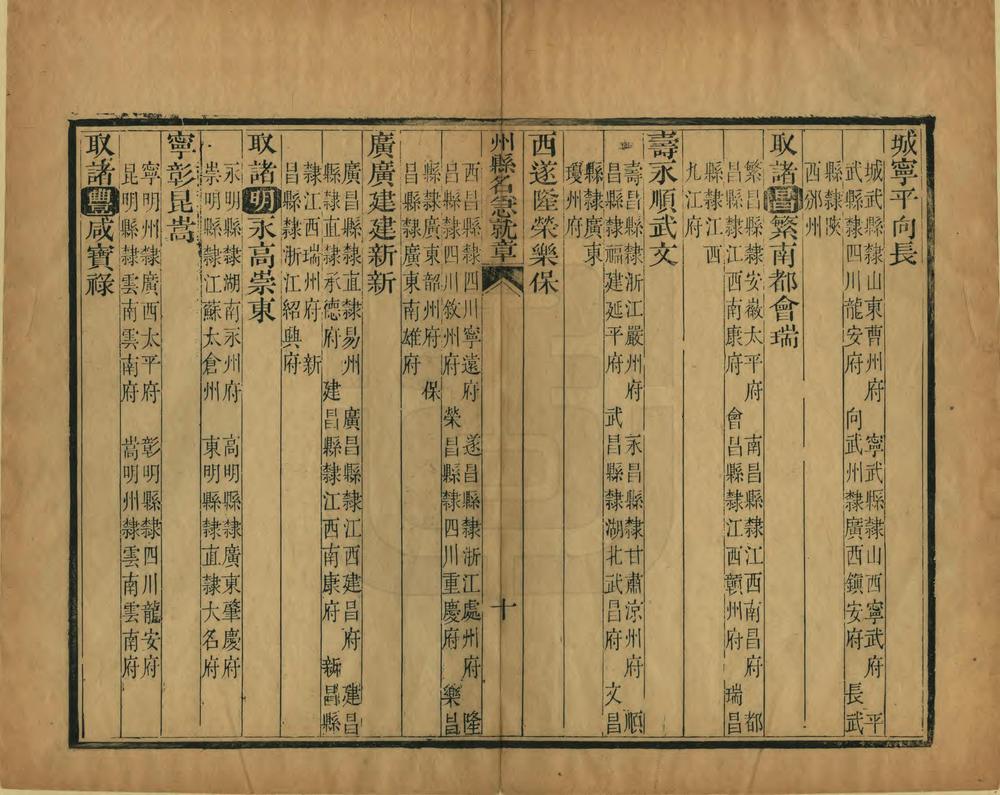 城寧平向長
城武縣隸山東曹州府　寧武縣隸山西寧武府　平
武縣隸四川龍安府　向武州隸廣西鎮安府　長武
縣隸陝
西邠州
取諸昌繁南都會瑞
繁昌縣隸安徽太平府　南昌縣隸江西南昌府　都
昌縣隸江西南康府　會昌縣隸江西贛州府　瑞昌
縣隸江西
九江府
壽永順武文
壽昌縣隸浙江嚴州府　永昌縣隸甘肅涼州府　順
昌縣隸福建延平府　武昌縣隸湖北武昌府　文昌
縣隸廣東
瓊州府
西遂隆榮樂保
州縣名急就章
十
西昌縣隸四川寧遠府　遂昌縣隸浙江處州府　隆
昌縣隸四川敘州府　榮昌縣隸四川重慶府　樂昌
縣隸廣東韶州府　保
昌縣隸廣東南雄府
廣廣建建新新
廣昌縣隸直隸易州　廣昌縣隸江西建昌府　建昌
縣隸直隸承德府　建昌縣隸江西南康府　新昌縣
隸江西瑞州府　新
昌縣隸浙江紹興府
取諸明永高崇東
永明縣隸湖南永州府　高明縣隸廣東肇慶府
崇明縣隸江蘇太倉州　東明縣隸直隸大名府
寧彰昆嵩
寧明州隸廣西太平府　彰明縣隸四川龍安府
昆明縣隸雲南雲南府　嵩明州隸雲南雲南府
取諸豐咸寶祿